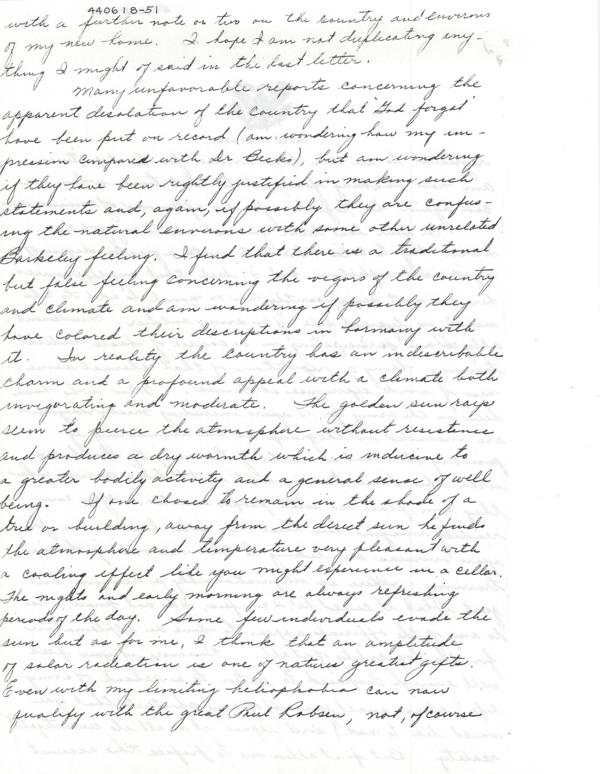 440618-51
with a further note or two on the country and environs
of my new home. I hope I am not duplicating any-
thing I might of said in the last letter.
Many unfavorable reports concerning the
apparent disolation of the country that "God forgot"
have been put on record (am wondering how my im-
pression compared with Dr Becks), but am wondering
if they have been rightly justified in making such
statements and, again, if possibly they are confus-
ing the natural environs with some other unrelated
Barkeley feeling. I find that there is a traditional
but false feeling concerning the vigors of the country
and climate and am wandering if possibly they
have colored their discriptions in harmany with
it. In reality the country has an indiscribable
charm and a profound appeal with a climate both
invigorating and moderate. The golden sun rays
seem to pierce the atmosphere without resistence
and produces a dry warmth which is inducine to
a greater bodily activity and a general sense of well
being. If one choses to remain in the shade of a
tree or building, away from the direct sun he finds
the atmosphere and temperature very pleasant with
a cooling effect like you might experience in a cellar.
The nights and early morning are always refreshing
periods of the day. Some few individuals evade the
sun but as for me, I think that an amplitude
of solar radiation is one of natures greatist gifts.
Even with my limiting heliophobia can now
qualify with the great Paul Robsen, not, of course